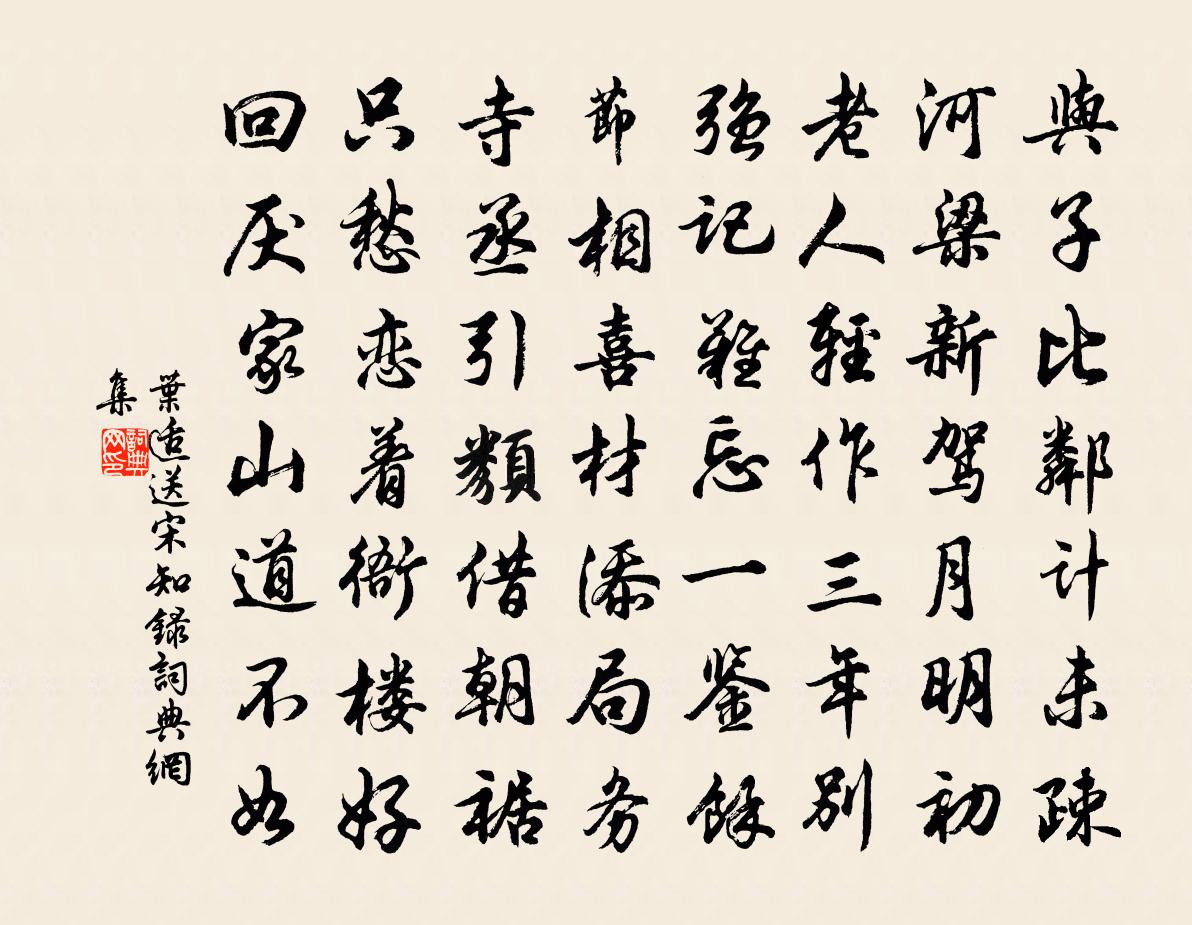 與子比鄰計未疎
河梁新駕月明初
老人輕作三年別
强記難忘一鉴餘
莭相喜材添局务
寺丞引類借朝裾
只愁恋着衙楼好
回厌家山道不如
葉适送宋知録詞典網
集
詞典
网印